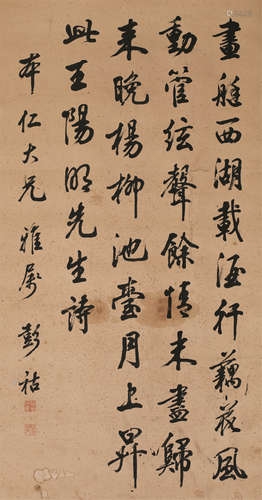 畫艇西湖載酒行藕花風
動管絃聲餘情未盡歸
來晚楊柳池臺月上昇
此王陽明先生詩
本仁大兄雅屬 彭祜